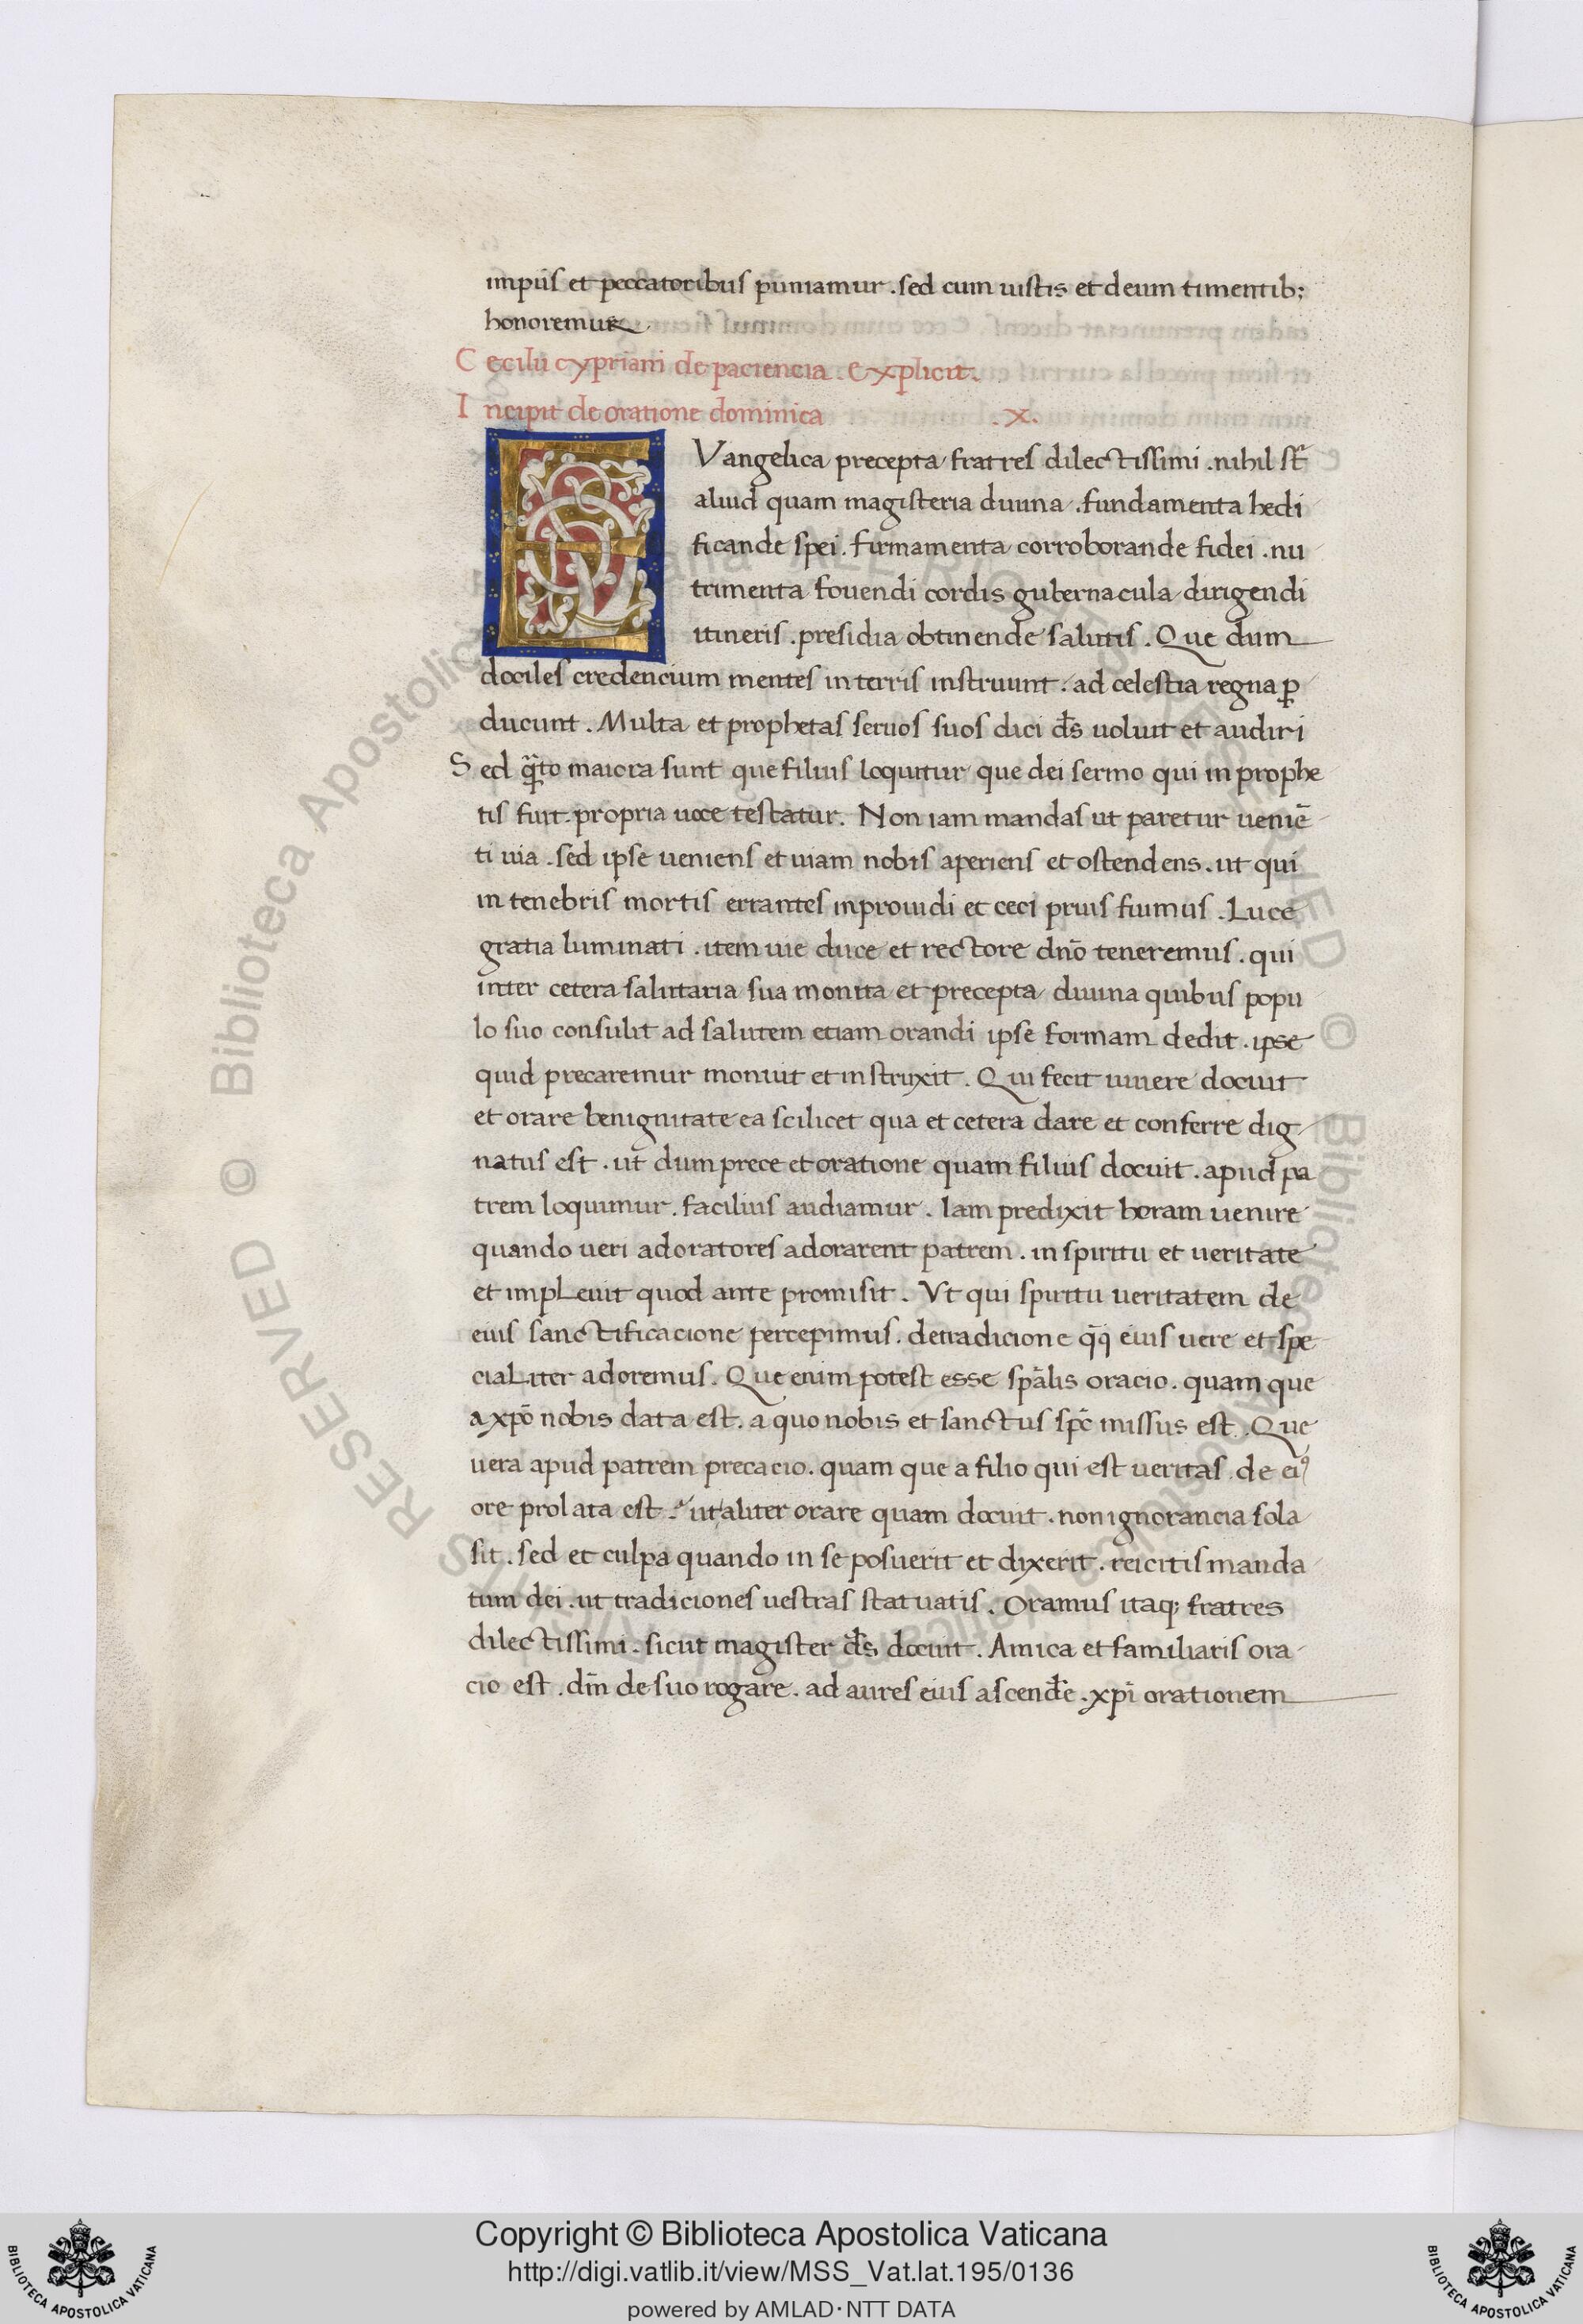 impiis et peccatoribus puniamur . sed cum iustis et deum timentib;
honoremur
Cecilii cypriani de paciencia . explicit .
Incipit de oratione dominica . x .
EVangelica precepta fratres dilectissimi . nihil st̄
aliud quam magisteria diuina . fundamenta hedi
ficande spei . firmamenta corroborande fidei . nu
trimenta fouendi cordis gubernacula dirigendi
itineris . presidia obtinende salutis . Que dum
dociles credencium mentes in terris instruunt . ad celestia regna ꝑ
ducunt . Multa et prophetas seruos suos dici ds̄ uoluit et audiri
Sed q̄̄to maiora sunt que filius loquitur que dei sermo qui in prophe
tis fuit . propria uoce testatur . Non iam mandas ut paretur ueniē
ti uia . sed ipse ueniens et uiam nobis aperiens et ostendens . ut qui
in tenebris mortis errantes inprouidi et ceci prius fuimus . Luce
gratia luminati . item uie duce et rectore dnō teneremus . qui
inter cetera salutaria sua monita et precepta diuina quibus popu
lo suo consulit ad salutem etiam orandi ipse formam dedit . ipse
quid precaremur monuit et instruxit . Qui fecit uiuere docuit
et orare benignitate ea scilicet qua et cetera dare et conferre dig
natus est . ut dum prece et oratione quam filius docuit . apud pa
trem loquimur . facilius audiamur . Iam predixit horam uenire
quando ueri adoratores adorarent patrem . in spiritu et ueritate
et impleuit quod ante promisit . Vt qui spiritu ueritatem de
eius sanctificacione percepimus . de tradicione q̄q; eius uere et spe
cialiter adoremus . Que enim potest esse spālis oracio . quam que
a xpō nobis data est . a quo nobis et sanctus spc̄ missus est . Que
uera apud patrem precacio . quam que a filio qui est ueritas . de ei᷒
ore prolata est . ut aliter orare quam docuit . non ignorancia sola
sit . sed et culpa quando in se posuerit et dixerit . reicitis manda
tum dei . ut tradiciones uestras statuatis . Oramus itaq; fratres
dilectissimi . sicut magister ds̄ docuit . Amica et familiaris ora
cio est . dm̄ de suo rogare . ad aures eius ascendēe . xpi̅ orationem
Copyright © Biblioteca Apostolica Vaticana
http://digi.vatlib.it/view/MSS_Vat.lat.195/0136
powered by AMLAD·NTT DATA
BIBLIOTECA APOSTOLICA VATICANA
BIBLIOTECA APOSTOLICA VATICANA